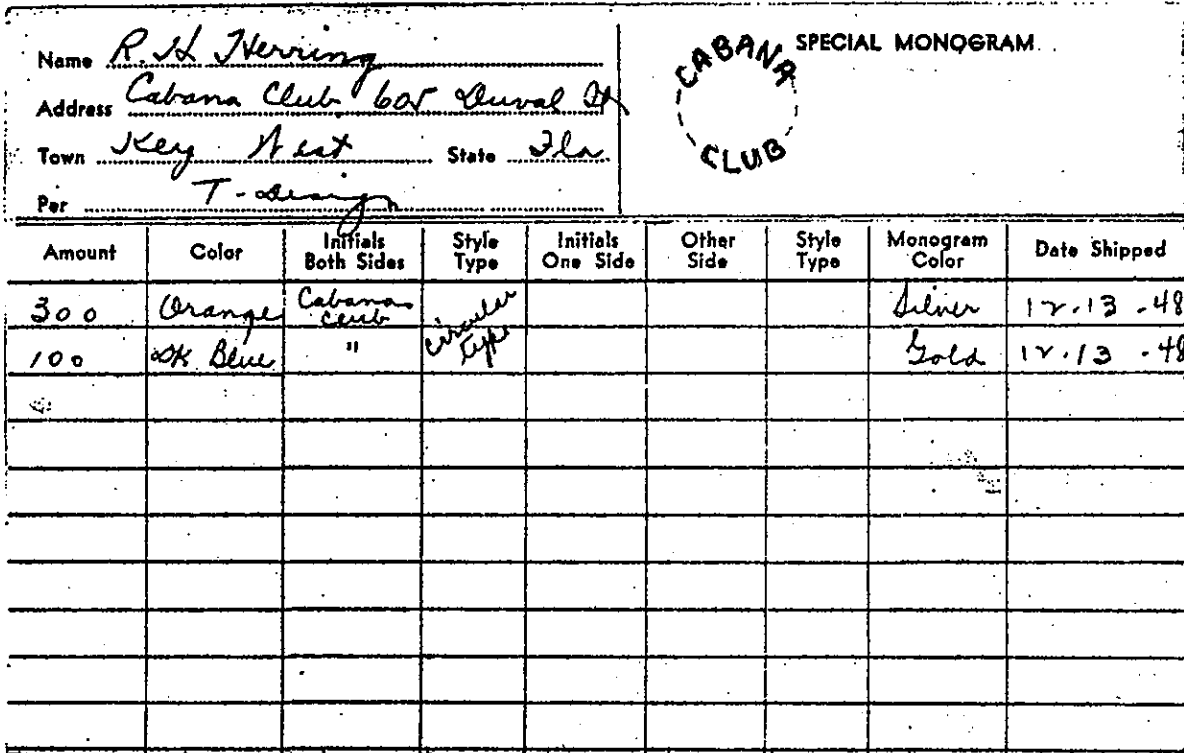 Name R. H. Herring
Address Cabana Club 605 Duval St
Town Key West State Fla
Per T-Design
SPECIAL MONOGRAM
CABANA
CLUB
Amount Color Initials Both Sides Style Type Initials One Side Other Side Style Type Monogram Color Date Shipped
300 Orange Cabana Club circular type Silver 12.13.48
100 DK Blue " Gold 12.13.48